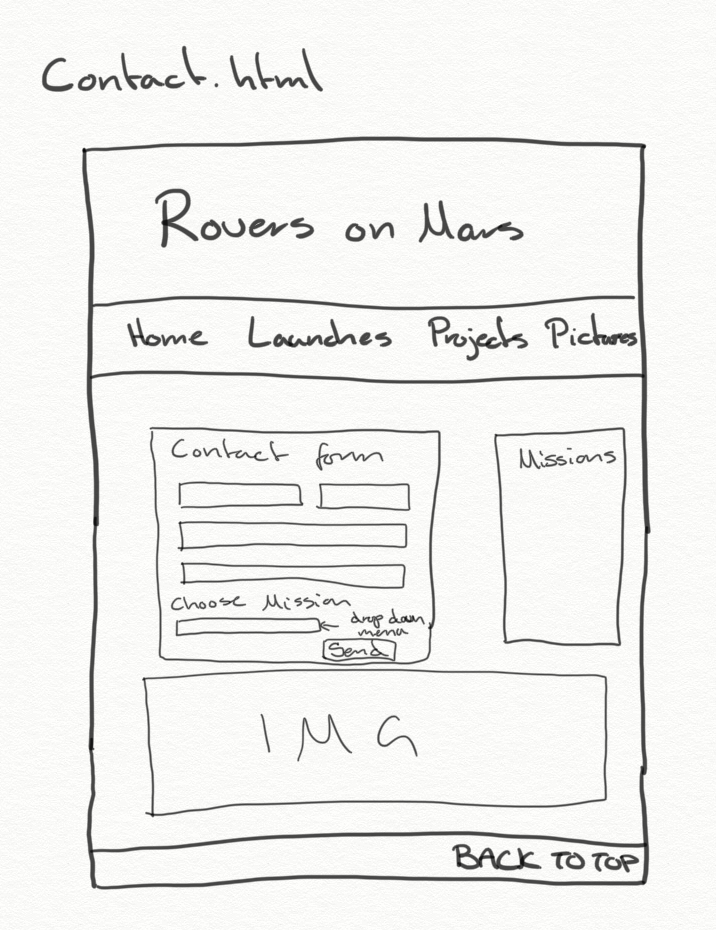 Contact.html
Rovers on Mars
Home Launches Projects Pictures
Contact form
Choose Mission
drop down
menu
Send
Missions
IMG
BACK TO TOP